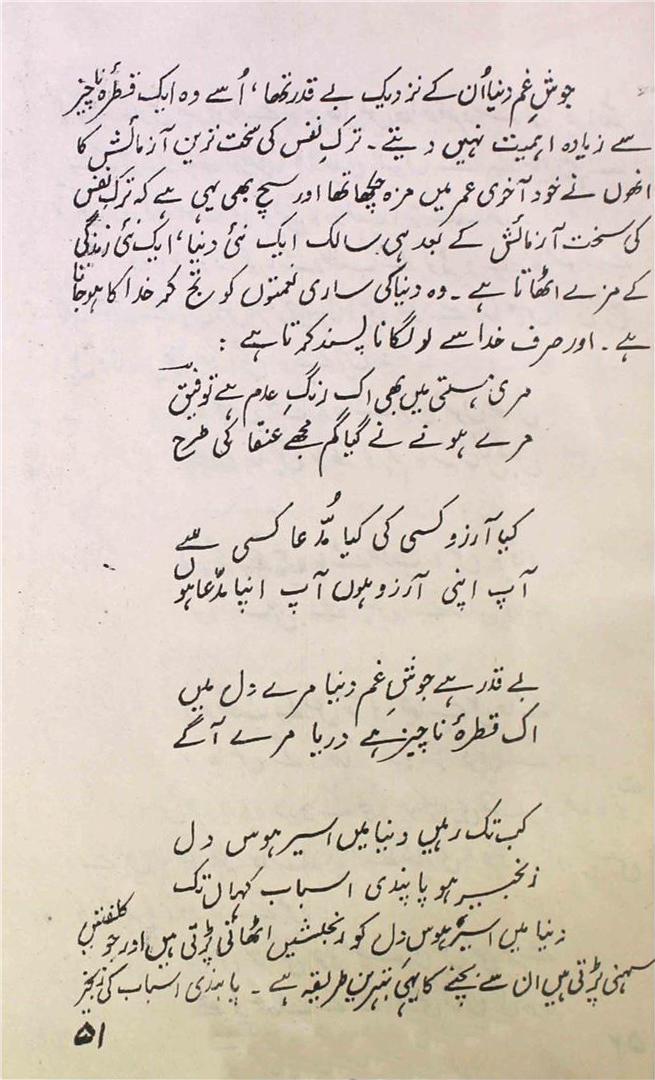 جوشِ غم دنیا اُن کے نزدیک بے قدر تھا، اُسے وہ ایک قطرۂ ناچیز
سے زیادہ اہمیت نہیں دیتے۔ ترکِ نفس کی سخت ترین آزمائش کا
انھوں نے خود آخری عمر میں مزہ چکھا تھا اور سچ بھی یہی ہے کہ ترکِ نفس
کی سخت آزمائش کے بعد ہی سالک ایک نئی دنیا، ایک نئی زندگی
کے مزے اٹھاتا ہے۔ وہ دنیا کی ساری نعمتوں کو تج کر خدا کا ہو جاتا
ہے۔ اور صرف خدا سے لو لگانا پسند کرتا ہے :
مری ہستی میں بھی اک رنگِ عدم ہے توفیق
مرے ہونے نے کیا گم مجھے عنقا کی طرح
کیا آرزو کسی کی کیا مُدّعا کسی سے
آپ اپنی آرزو ہوں آپ اپنا مدّعا ہوں
بے قدر ہے جوشِ غم دنیا مرے دل میں
اک قطرۂ ناچیز ہے دریا مرے آگے
کب تک رہیں دنیا میں اسیر ہوس دل
زنجیر ہو پابندی اسباب کہاں تک
دنیا میں اسیرِ ہوسِ دل کو رنجشیں اٹھانی پڑتی ہیں اور جو کلفتیں
سہنی پڑتی ہیں ان سے بچنے کا یہی بہترین طریقہ ہے۔ پابندی اسباب کی زنجیر
۵۱